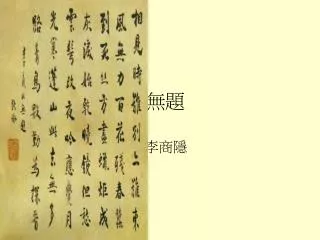 無題
李商隱
相見時難別亦難東
風無力百花殘春蠶
到死絲方盡蠟炬成
灰淚始乾曉鏡但愁
雲鬢改夜吟應覺月
光寒蓬山此去無多
路青鳥殷勤為探看